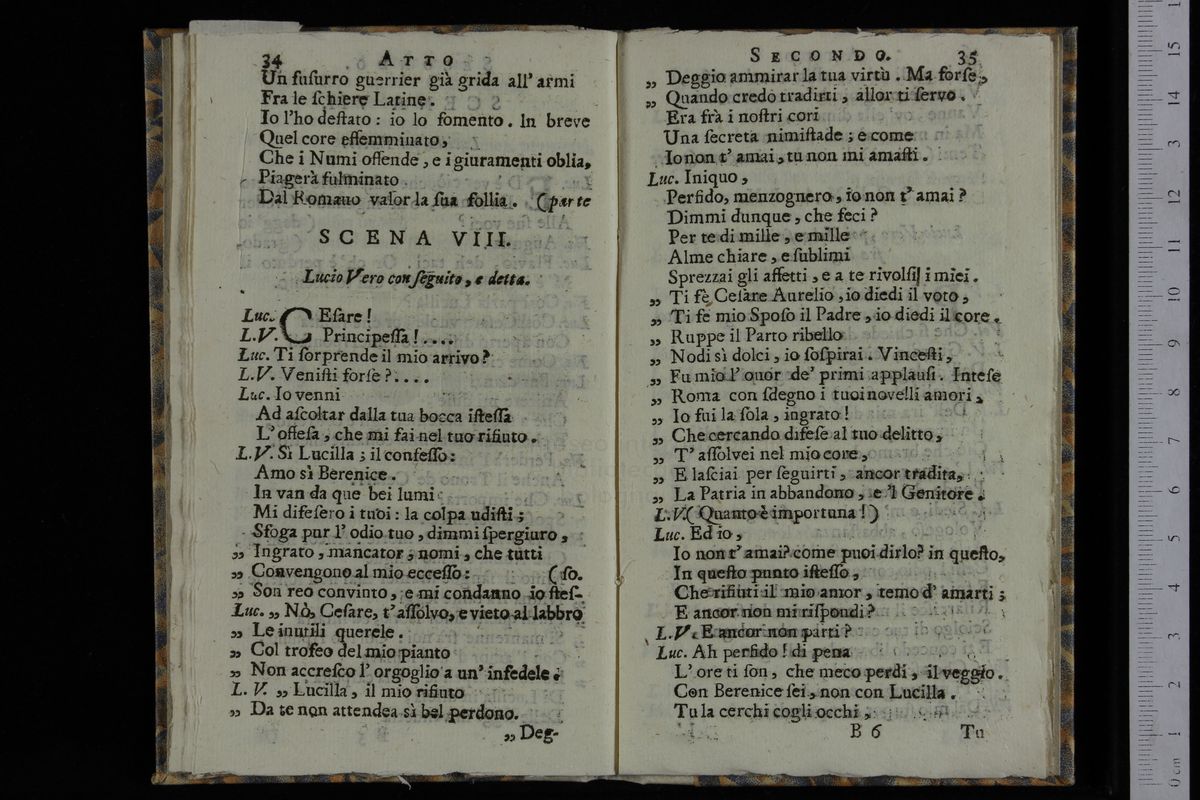 34 ATTO
Un ſuſurro guerrier già grida all' armi
Fra le ſchiere Latine.
Io l'ho deſtato: io lo fomento. In breve
Quel core effemminato,
Che i Numi offende, e i giuramenti oblia,
Piagerà fulminato
Dal Romano valor la ſua follia. (parte
SCENA VIII.
Lucio Vero con ſeguito, e detta.
Luc. CEſare!
L.V. Principeſſa!....
Luc. Ti ſorprende il mio arrivo?
L.V. Veniſti forſe?....
Luc. Io venni
Ad aſcoltar dalla tua bocca iſteſſa
L' offeſa, che mi fai nel tuo rifiuto.
L.V. Sì Lucilla; il confeſſo:
Amo sì Berenice.
In van da que bei lumi
Mi difeſero i tuoi: la colpa udiſti;
Sfoga pur l' odio tuo, dimmi ſpergiuro,
„ Ingrato, mancator; nomi, che tutti
„ Convengono al mio ecceſſo: (ſo.
„ Son reo convinto, e mi condanno io ſteſ-
Luc. „ Nò, Ceſare, t' aſſolvo, e vieto al labbro
„ Le inutili querele.
„ Col trofeo del mio pianto
„ Non accreſco l' orgoglio a un' infedele.
L. V. „ Lucilla, il mio rifiuto
„ Da te non attendea sì bel perdono.
„ Deg-
SECONDO. 35
„ Deggio ammirar la tua virtù. Ma forſe,
„ Quando credo tradirti, allor ti ſervo.
Era frà i noſtri cori
Una ſecreta nimiſtade; e come
Io non t' amai, tu non mi amaſti.
Luc. Iniquo,
Perfido, menzognero, io non t' amai?
Dimmi dunque, che feci?
Per te di mille, e mille
Alme chiare, e ſublimi
Sprezzai gli affetti, e a te rivolſi i miei.
„ Ti fè Ceſare Aurelio, io diedi il voto,
„ Ti fe mio Spoſo il Padre, io diedi il core.
„ Ruppe il Parto ribello
„ Nodi sì dolci, io ſoſpirai. Vinceſti,
„ Fu mio l' onor de' primi applauſi. Inteſe
„ Roma con ſdegno i tuoi novelli amori,
„ Io fui la ſola, ingrato!
„ Che cercando difeſe al tuo delitto,
„ T' aſſolvei nel mio core,
„ E laſciai per ſeguirti, ancor tradita,
„ La Patria in abbandono, e 'l Genitore.
L.V. (Quanto è importuna!)
Luc. Ed io,
Io non t' amai? come puoi dirlo? in queſto,
In queſto punto iſteſſo,
Che rifiuti il mio amor, temo d' amarti;
E ancor non mi riſpondi?
L.V. E ancor non parti?
Luc. Ah perfido! di pena
L' ore ti ſon, che meco perdi, il veggio.
Con Berenice ſei, non con Lucilla.
Tu la cerchi cogli occhi,
B 6 Tu